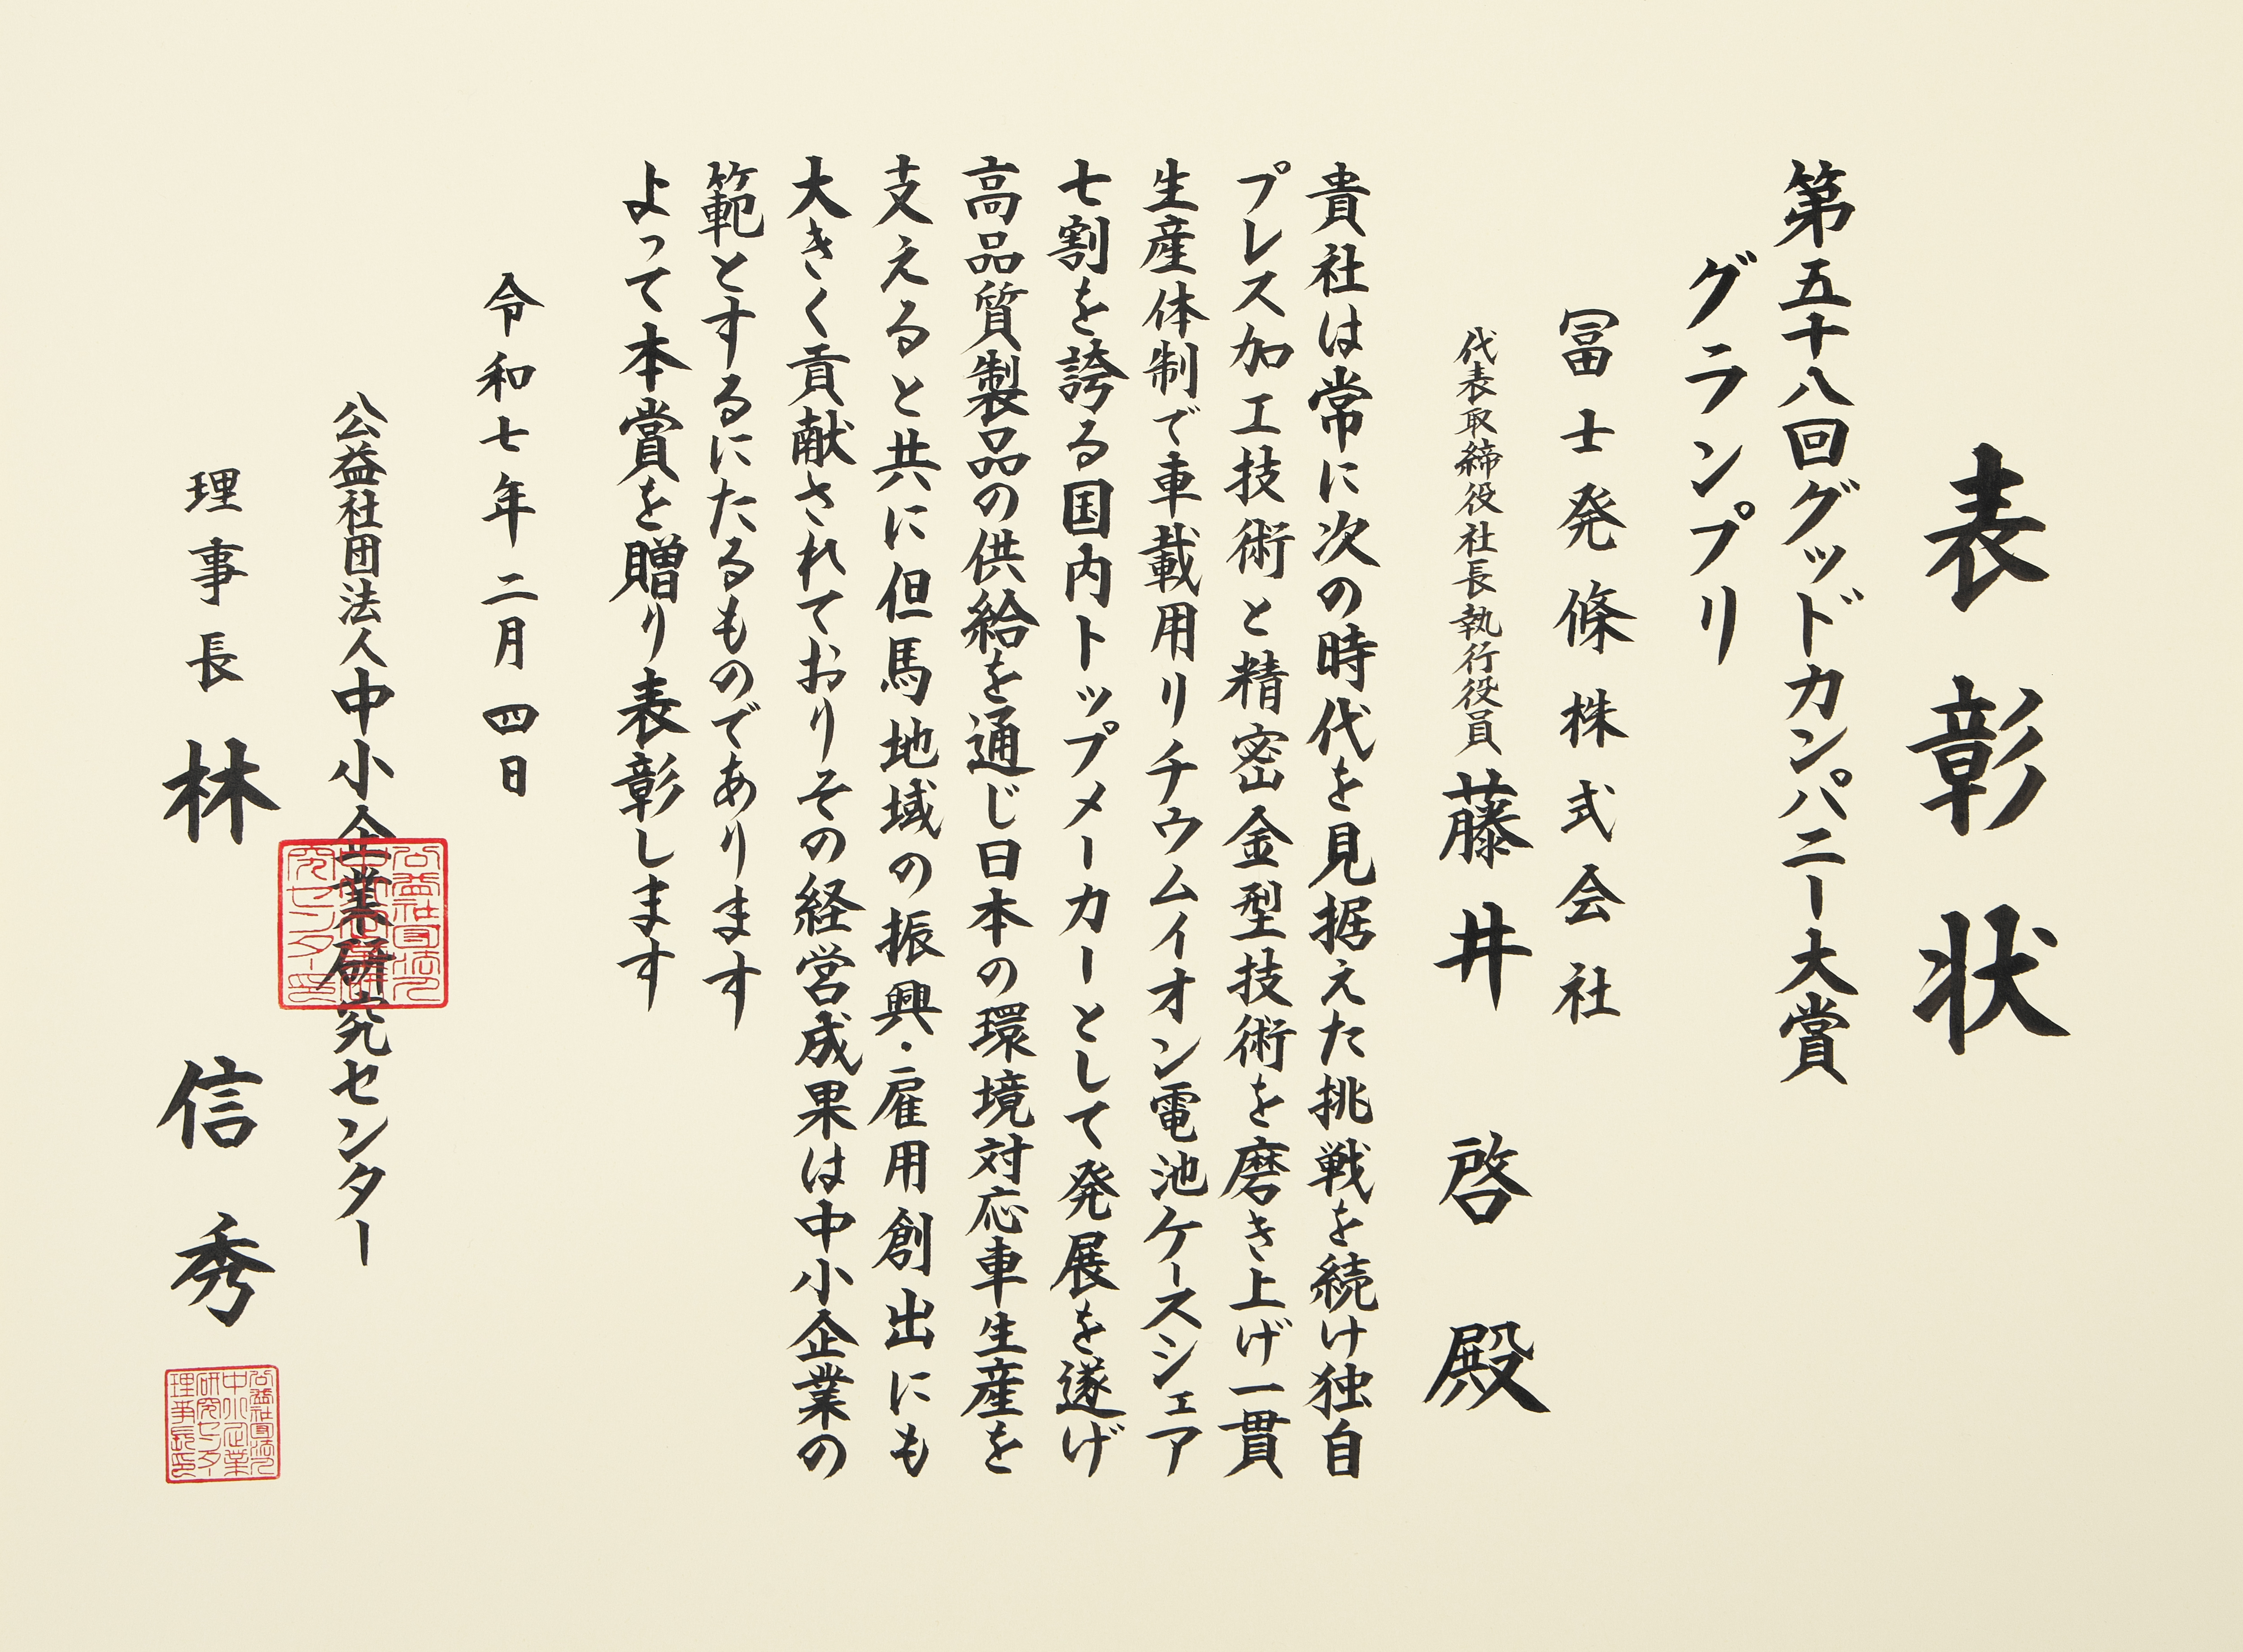 表彰状
第五十八回グッドカンパニー大賞
グランプリ
冨士発條株式会社
代表取締役社長執行役員 藤井 啓 殿
貴社は常に次の時代を見据えた挑戦を続け独自
プレス加工技術と精密金型技術を磨き上げ一貫
生産体制で車載用リチウムイオン電池ケースシェア
七割を誇る国内トップメーカーとして発展を遂げ
高品質製品の供給を通じ日本の環境対応車生産を
支えると共に但馬地域の振興・雇用創出にも
大きく貢献されておりその経営成果は中小企業の
範とするにたるものであります
よって本賞を贈り表彰します
令和七年二月四日
公益社団法人中小企業研究センター
公益社団法人中小企業研究センター印
理事長 林 信秀
公益社団法人中小企業研究センター理事長印